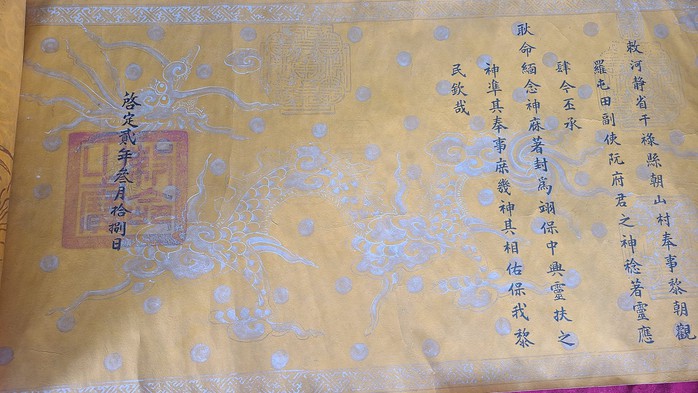 敕河静省干祿縣朝山村奉事黎朝觀
羅屯田副使阮府君之神稔著靈應
肆今丕承
耿命緬念神庥著封爲翊保中興靈扶之
神準其奉事庶幾神其相佑保我黎
民欽哉
啓定貳年叁月拾捌日